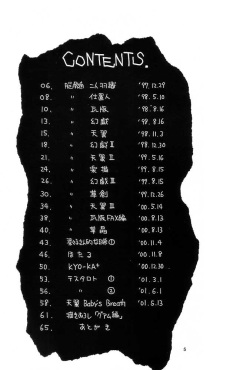 CONTENTS.
06. '97.12.29
08. 〃 仕置人 '98.5.10
10. 〃 瓦版 '98.8.16
13. 〃 幻戯 '98.8.16
15. 〃 天翼 '98.11.3
18. 〃 幻戯Ⅱ '98.12.30
21. 〃 天翼Ⅱ '99.5.16
24. 〃 '99.8.15
26. 〃 幻戯Ⅲ '99.8.15
30. 〃 '99.12.26
34. 〃 天翼Ⅲ '00.5.14
38. 〃 瓦版FAX編 '00.8.13
40. 〃 '00.8.13
43. ① '00.11.4
46. ほたる '00.11.8
50. KYO-KA+ '00.12.30
53. テスタロト ① '01.3.1
56. 〃 ② '01.6.1
58. 天翼 Baby's Breath '01.6.13
61. 描きおろし「グァム編」
65. あとがき